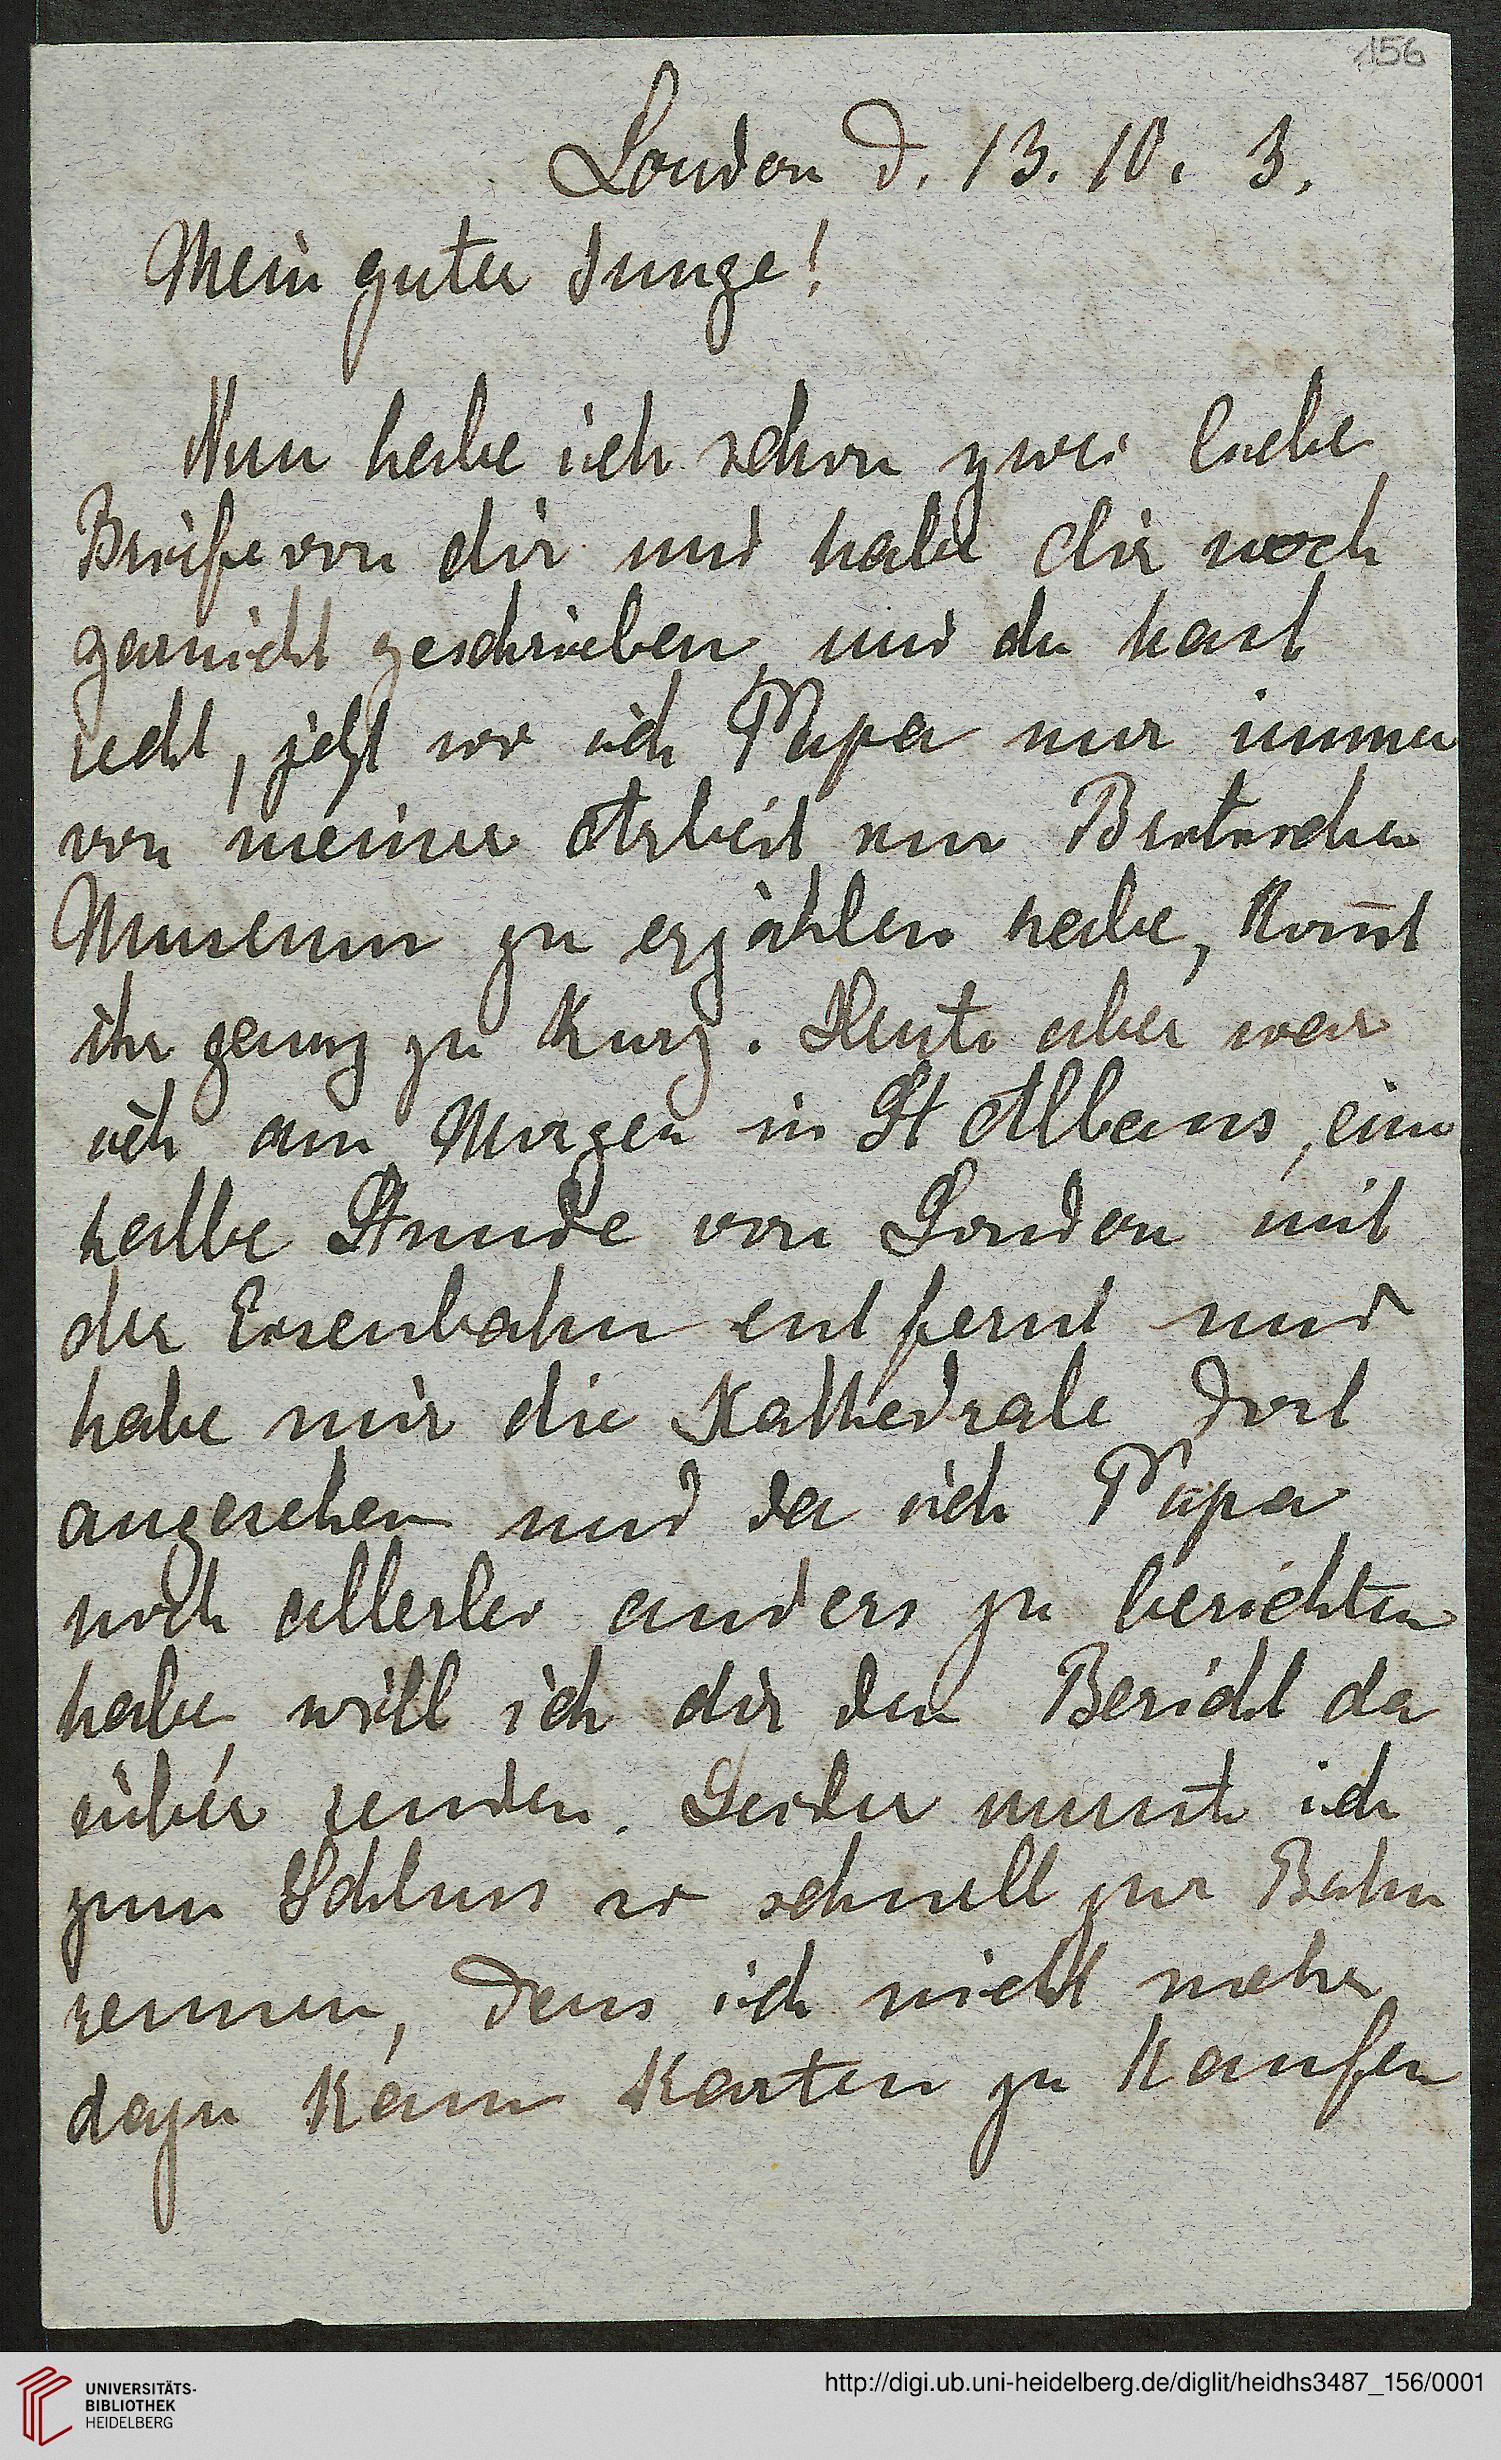 156
London d. 13. 10. 3.
Mein guter Junge!
Nun habe ich schon zwei liebe
Briefe von dir und habe dir noch
garnicht geschrieben, und du hast
recht, jetzt wo ich Papa nur immer
von meiner Arbeit am Britischen
Museum zu erzählen habe, kom̄t
ihr genug zu kurz. Heute aber war
ich am Morgen in St Albans, eine
halbe Stunde von London mit
der Eisenbahn entfernt und
habe mir die Kathedrale dort
angesehen und da ich Papa
noch allerlei anders zu berichten
habe will ich dir den Bericht da
rüber senden. Leider musste ich
zum Schluss so schnell zur Bahn
rennen, dass ich nicht mehr
dazu kam Karten zu kaufen
UNIVERSITÄTS-
BIBLIOTHEK
HEIDELBERG
http://digi.ub.uni-heidelberg.de/diglit/heidhs3487_156/0001